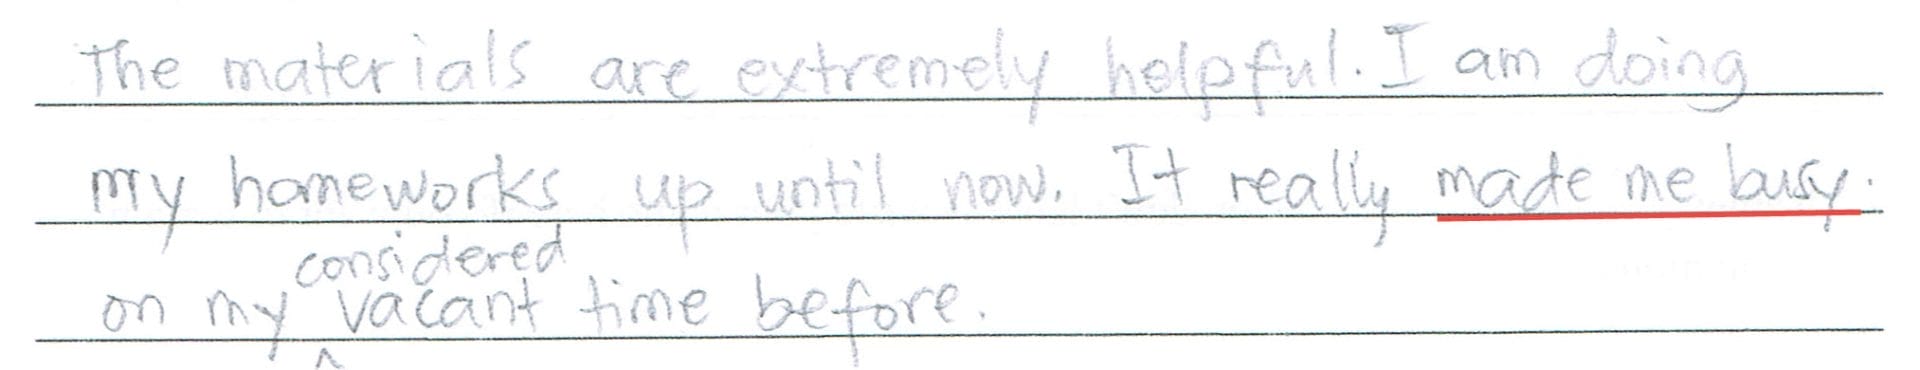 The materials are extremely helpful. I am doing
my homeworks up until now. It really made me busy.
considered
on my vacant time before.